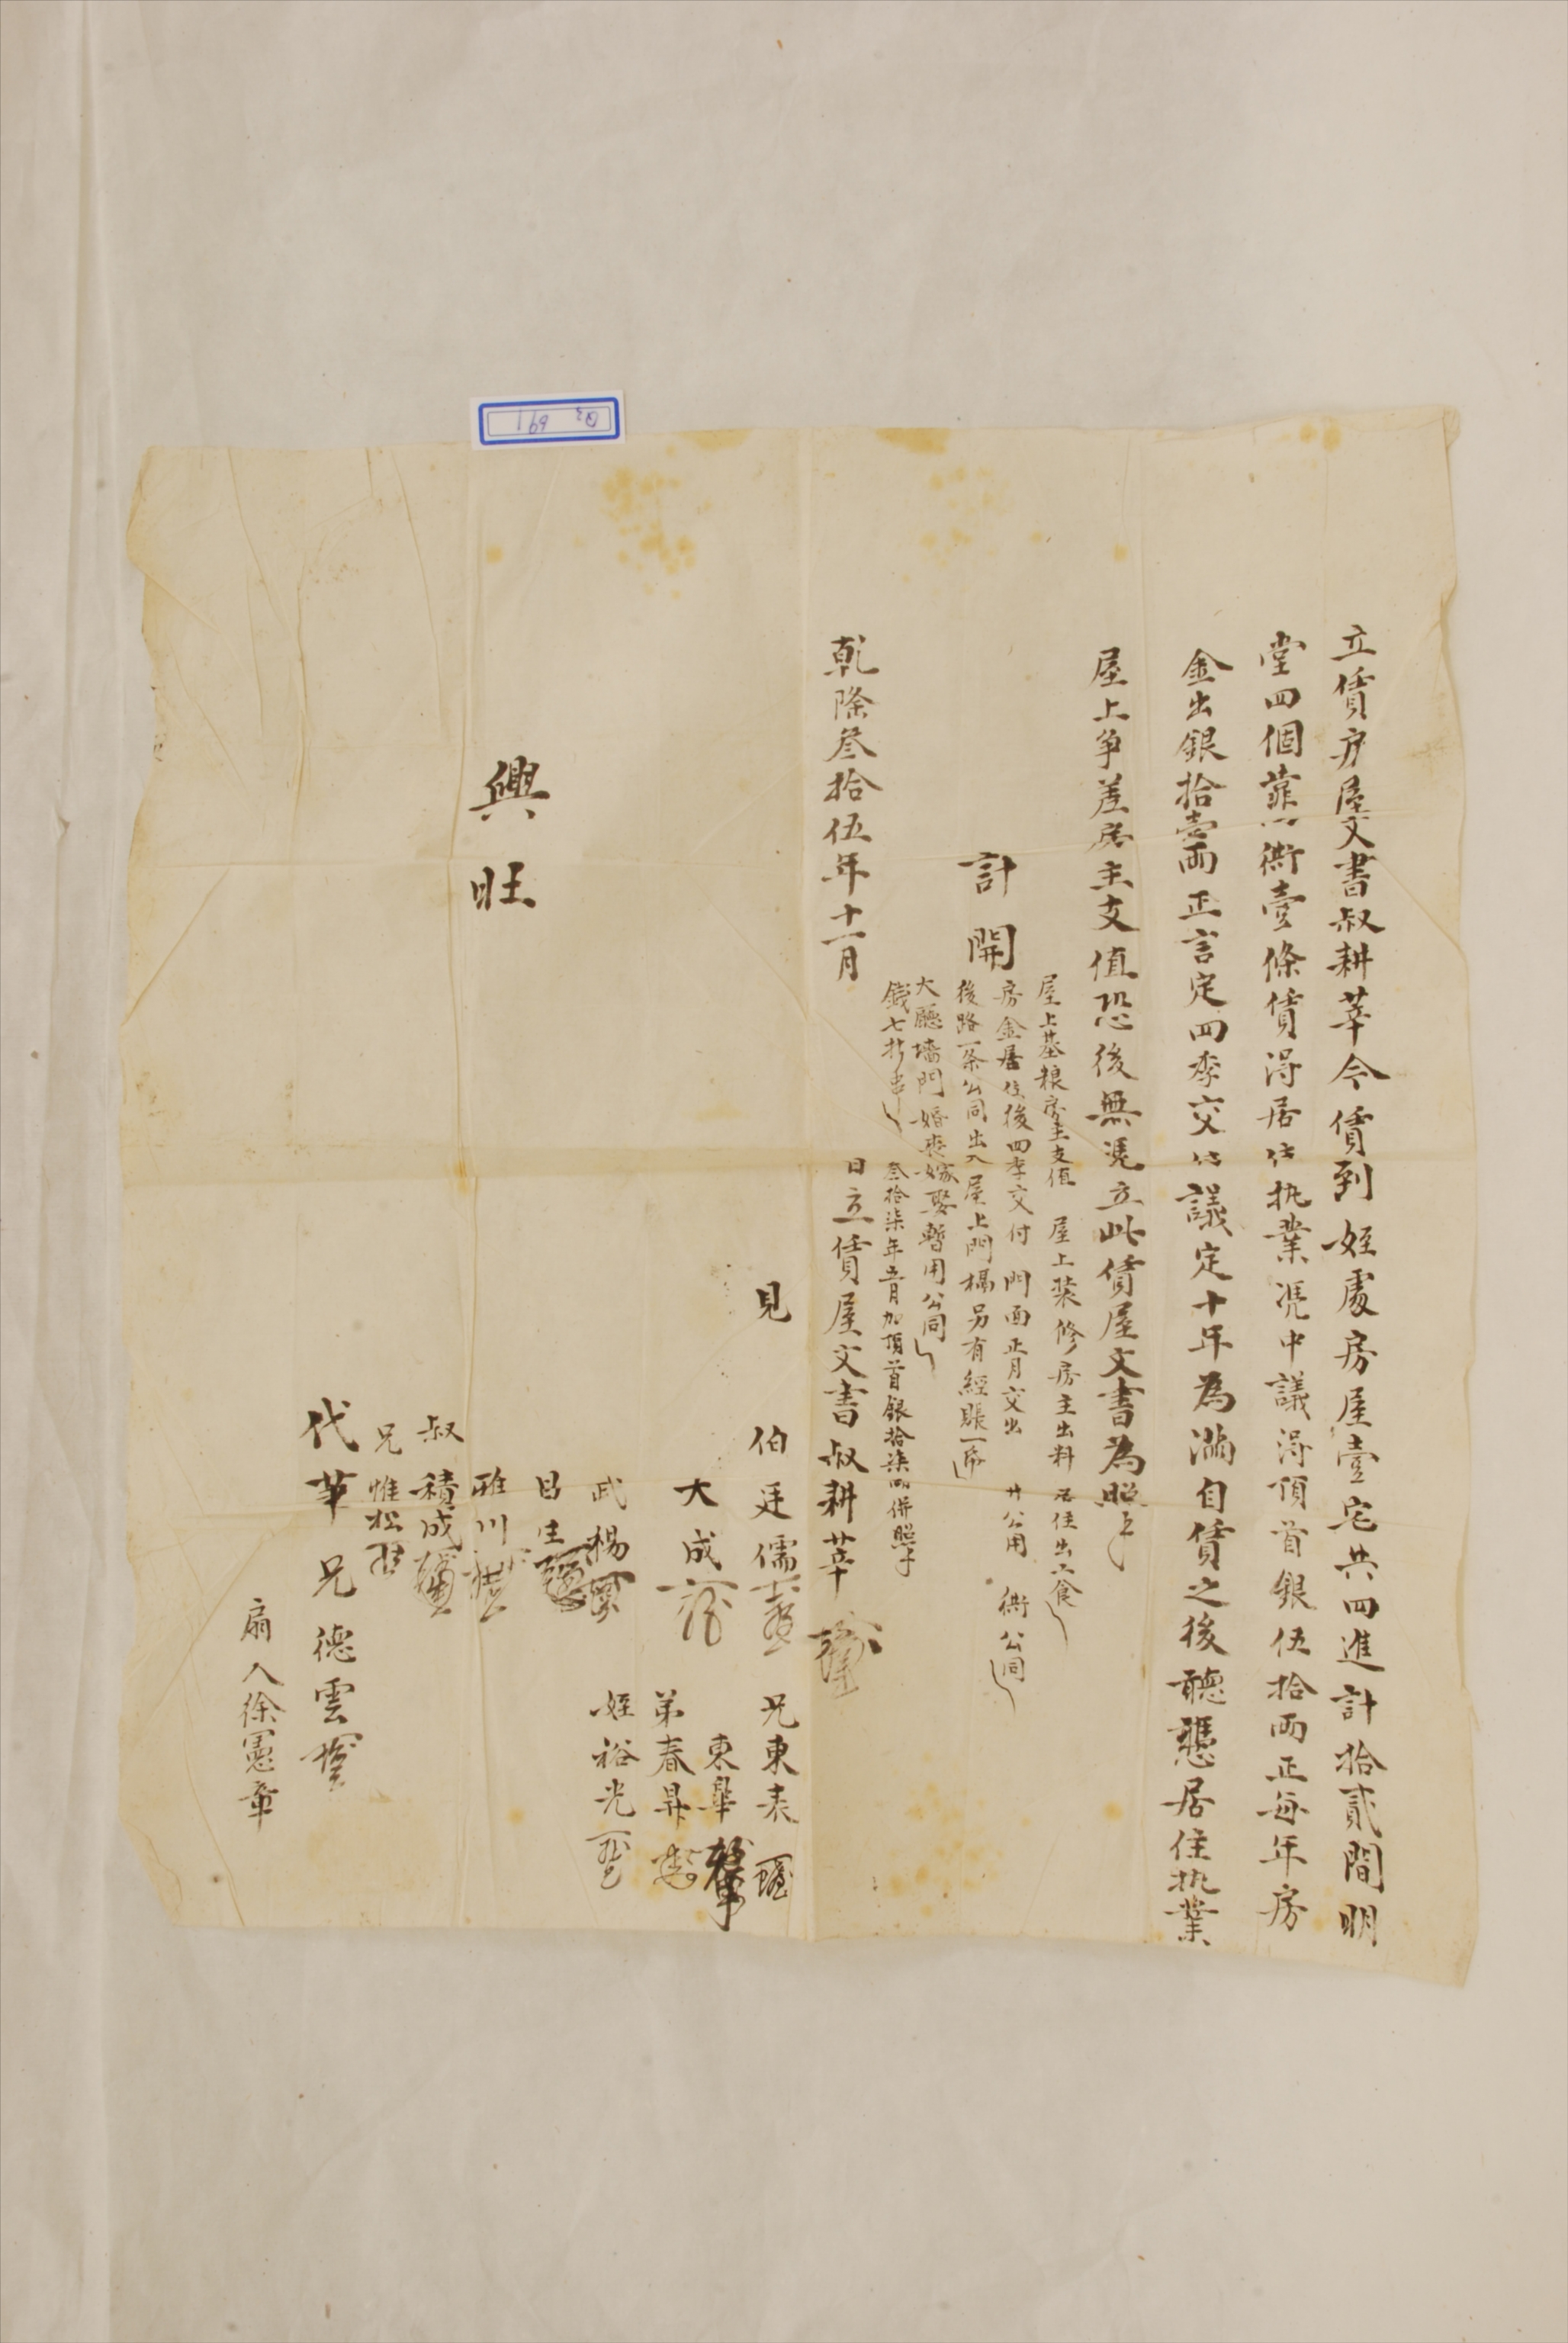 立賃房屋文書叔耕莘今賃到姪處房屋壹宅共四進計拾貳間明
堂四個靠衖壹條賃得居住执業凴中議得頂首銀伍拾両正每年房
金出銀拾壹両正言定四季交付議定十年為滿自賃之後聽憑居住执業
屋上争差房主支值恐後無凴立此賃屋文書為照
計開
屋上基粮房主支值 屋上裝修房主出料 居住出工食
房金居住後四季交付 門面正月交出 井公用 衖公同
後路一条公同出入屋上門槅另有經賬一帋
大廳墻門婚喪嫁娶暫用公同
錢七折串
叁拾柒年 月加頂首銀拾柒両併照
乾隆叁拾伍年十一月 日立賃屋文書叔耕莘
見 伯廷儒 兄東表
東皐
大成 弟春昇
武楊 姪裕光
昌生
雅川
叔積成
兄惟松
興旺
代筆兄德雲
扇入徐憲章
Q2 691